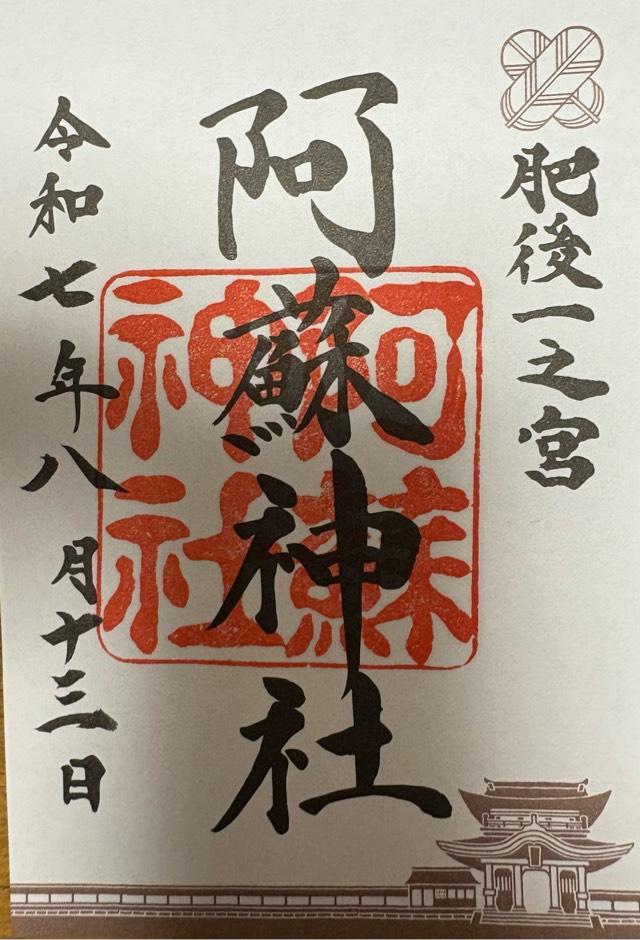 肥後一之宮
阿蘇神社
阿蘇神社
令和七年八月十三日